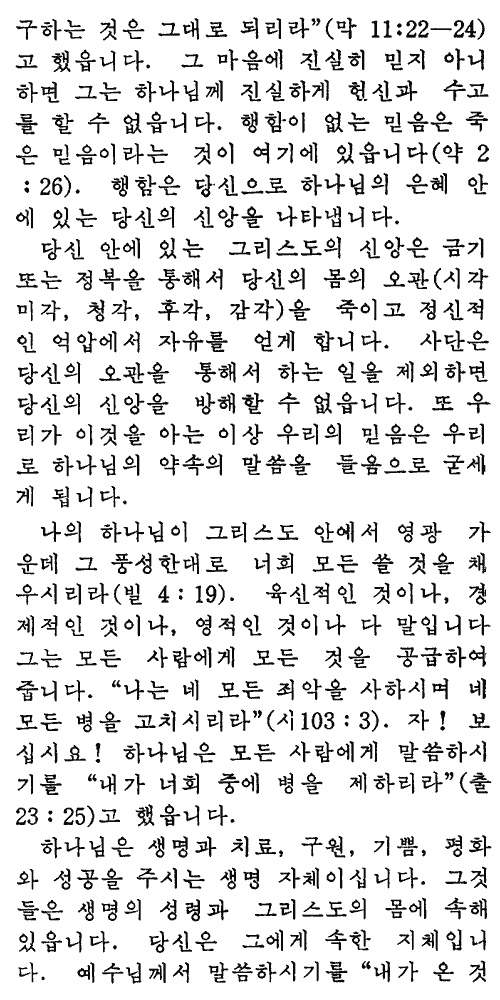 구하는 것은 그대로 되리라”(막 11:22—24)
고 했읍니다. 그 마음에 진실히 믿지 아니
하면 그는 하나님께 진실하게 헌신과 수고
를 할 수 없읍니다. 행함이 없는 믿음은 죽
은 믿음이라는 것이 여기에 있읍니다(약 2
: 26). 행함은 당신으로 하나님의 은혜 안
에 있는 당신의 신앙을 나타냅니다.
당신 안에 있는 그리스도의 신앙은 금기
또는 정복을 통해서 당신의 몸의 오관(시각
미각, 청각, 후각, 감각)을 죽이고 정신적
인 억압에서 자유를 얻게 합니다. 사단은
당신의 오관을 통해서 하는 일을 제외하면
당신의 신앙을 방해할 수 없읍니다. 또 우
리가 이것을 아는 이상 우리의 믿음은 우리
로 하나님의 약속의 말씀을 들음으로 굳세
게 됩니다.
나의 하나님이 그리스도 안에서 영광 가
운데 그 풍성한대로 너희 모든 쓸 것을 채
우시리라(빌 4 : 19). 육신적인 것이나, 경
제적인 것이나, 영적인 것이나 다 말입니다
그는 모든 사람에게 모든 것을 공급하여
줍니다. “나는 네 모든 죄악을 사하시며 네
모든 병을 고치시리라”(시103 : 3). 자! 보
십시요! 하나님은 모든 사람에게 말씀하시
기를 “내가 너희 중에 병을 제하리라”(출
23 : 25)고 했읍니다.
하나님은 생명과 치료, 구원, 기쁨, 평화
와 성공을 주시는 생명 자체이십니다. 그것
들은 생명의 성령과 그리스도의 몸에 속해
있읍니다. 당신은 그에게 속한 지체입니
다. 예수님께서 말씀하시기를 “내가 온 것